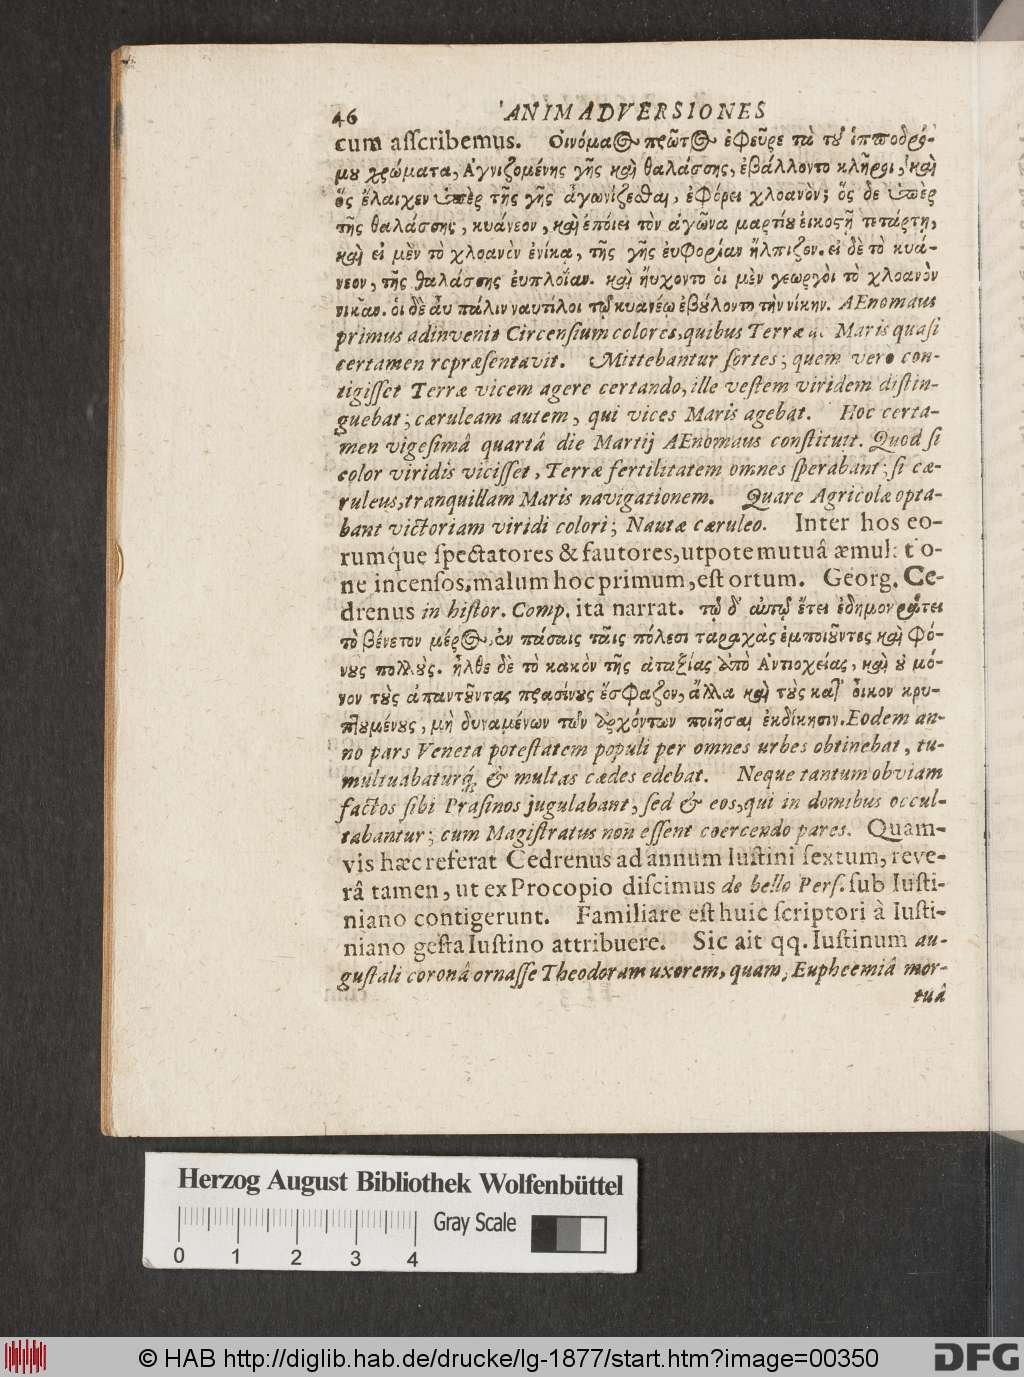 46 ANIMADVERSIONES
cum aſſcribemus. Οἰνόμαος πρῶτος ἐφεῦρε τὰ τοῦ ἱπποδρό-
μου χρώματα, Ἀγνιζομένης γῆς καὶ θαλάσσης, ἐβάλλοντο κλῆροι, καὶ
ὅς ἔλαιχεν ὑπὲρ τῆς γῆς ἀγωνίζεσθαι, ἐφόρει χλοανὸν; ὅς δε ὑπὲρ
τῆς θαλάσσης, κυάνεον, καὶ ἐποίει τὸν ἀγῶνα μαρτίου εἰκοςῇ τετάρτῃ,
καὶ εἰ μὲν τὸ χλοανὸν ἐνίκα, τῆς γῆς ἐυφορίαν ἤλπιζον. εἰ δὲ τὸ κυά-
νεον, τῆς θαλάσσης ἐυπλοΐαν. καὶ ἤυχοντο ὁι μὲν γεωργοὶ τὸ χλοανὸν
νικᾶν. ὁι δὲ ἀυ πάλιν ναυτίλοι τῷ κυανέῳ ἐβούλοντο τὴν νίκην. AEnomaus
primus adinvenit Circenſium colores, quibus Terræ ac Maris quaſi
certamen repræſentavit. Mittebantur ſortes; quem vero con-
tigiſſet Terræ vicem agere certando, ille veſtem viridem diſtin-
guebat; cæruleam autem, qui vices Maris agebat. Hoc certa-
men vigeſimâ quartâ die Martij AEnomaus conſtituit. Quod ſi
color viridis viciſſet, Terræ fertilitatem omnes ſperabant; ſi cæ-
ruleus, tranquillam Maris navigationem. Quare Agricolæ opta-
bant victoriam viridi colori; Nautæ cæruleo. Inter hos eo-
rumq́ue ſpectatores & fautores, utpote mutuâ æmulatio-
ne incenſos, malum hoc primum, eſt ortum. Georg. Ce-
drenus in hiſtor. Comp. ita narrat. τῷ δ' αυτῷ ἔτει ἐδημοκράτει
τὸ βένετον μέρος, ἐν πάσαις ταῖς πόλεσι ταραχὰς ἐμποιοῦντες καὶ φό-
νους πολλοὺς. ἦλθε δὲ τὸ κακὸν τῆς ἀταξίας ἀπὸ Ἀντιοχείας, καὶ οὐ μό-
νον τοὺς ἀπαντοῦντας πρασίνους ἔσφαζον, ἄλλα καὶ τοὺς κατ' οἶκον κρυ-
πτομένους, μὴ δυναμένων τῶν ἀρχόντων ποιῆσαι ἐκδίκησιν. Eodem an-
no pars Veneta poteſtatem populi per omnes urbes obtinebat, tu-
multuabaturq́ & multas cædes edebat. Neque tantum obviam
factos ſibi Praſinos jugulabant, ſed & eos, qui in domibus occul-
tabantur; cum Magiſtratus non eſſent coercendo pares. Quam-
vis hæc referat Cedrenus ad annum Iuſtini ſextum, reve-
râ tamen, ut ex Procopio diſcimus de bello Perſ. ſub Iuſti-
niano contigerunt. Familiare eſt huic ſcriptori à Iuſti-
niano geſta Iuſtino attribuere. Sic ait qq. Iuſtinum au-
guſtali coronâ ornaſſe Theodoram uxorem, quam, Eupheemiâ mor-
tuâ
Herzog August Bibliothek Wolfenbüttel
Gray Scale
0 1 2 3 4
© HAB http://diglib.hab.de/drucke/lg-1877/start.htm?image=00350
DFG